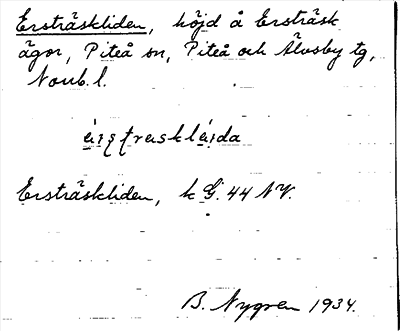 Ersträskliden, höjd å Ersträsk
ägor, Piteå sn, Piteå och Älvsby tg,
Norrb. l.
Ersträskliden, k G. 44 NV.
B. Nygren 1934.